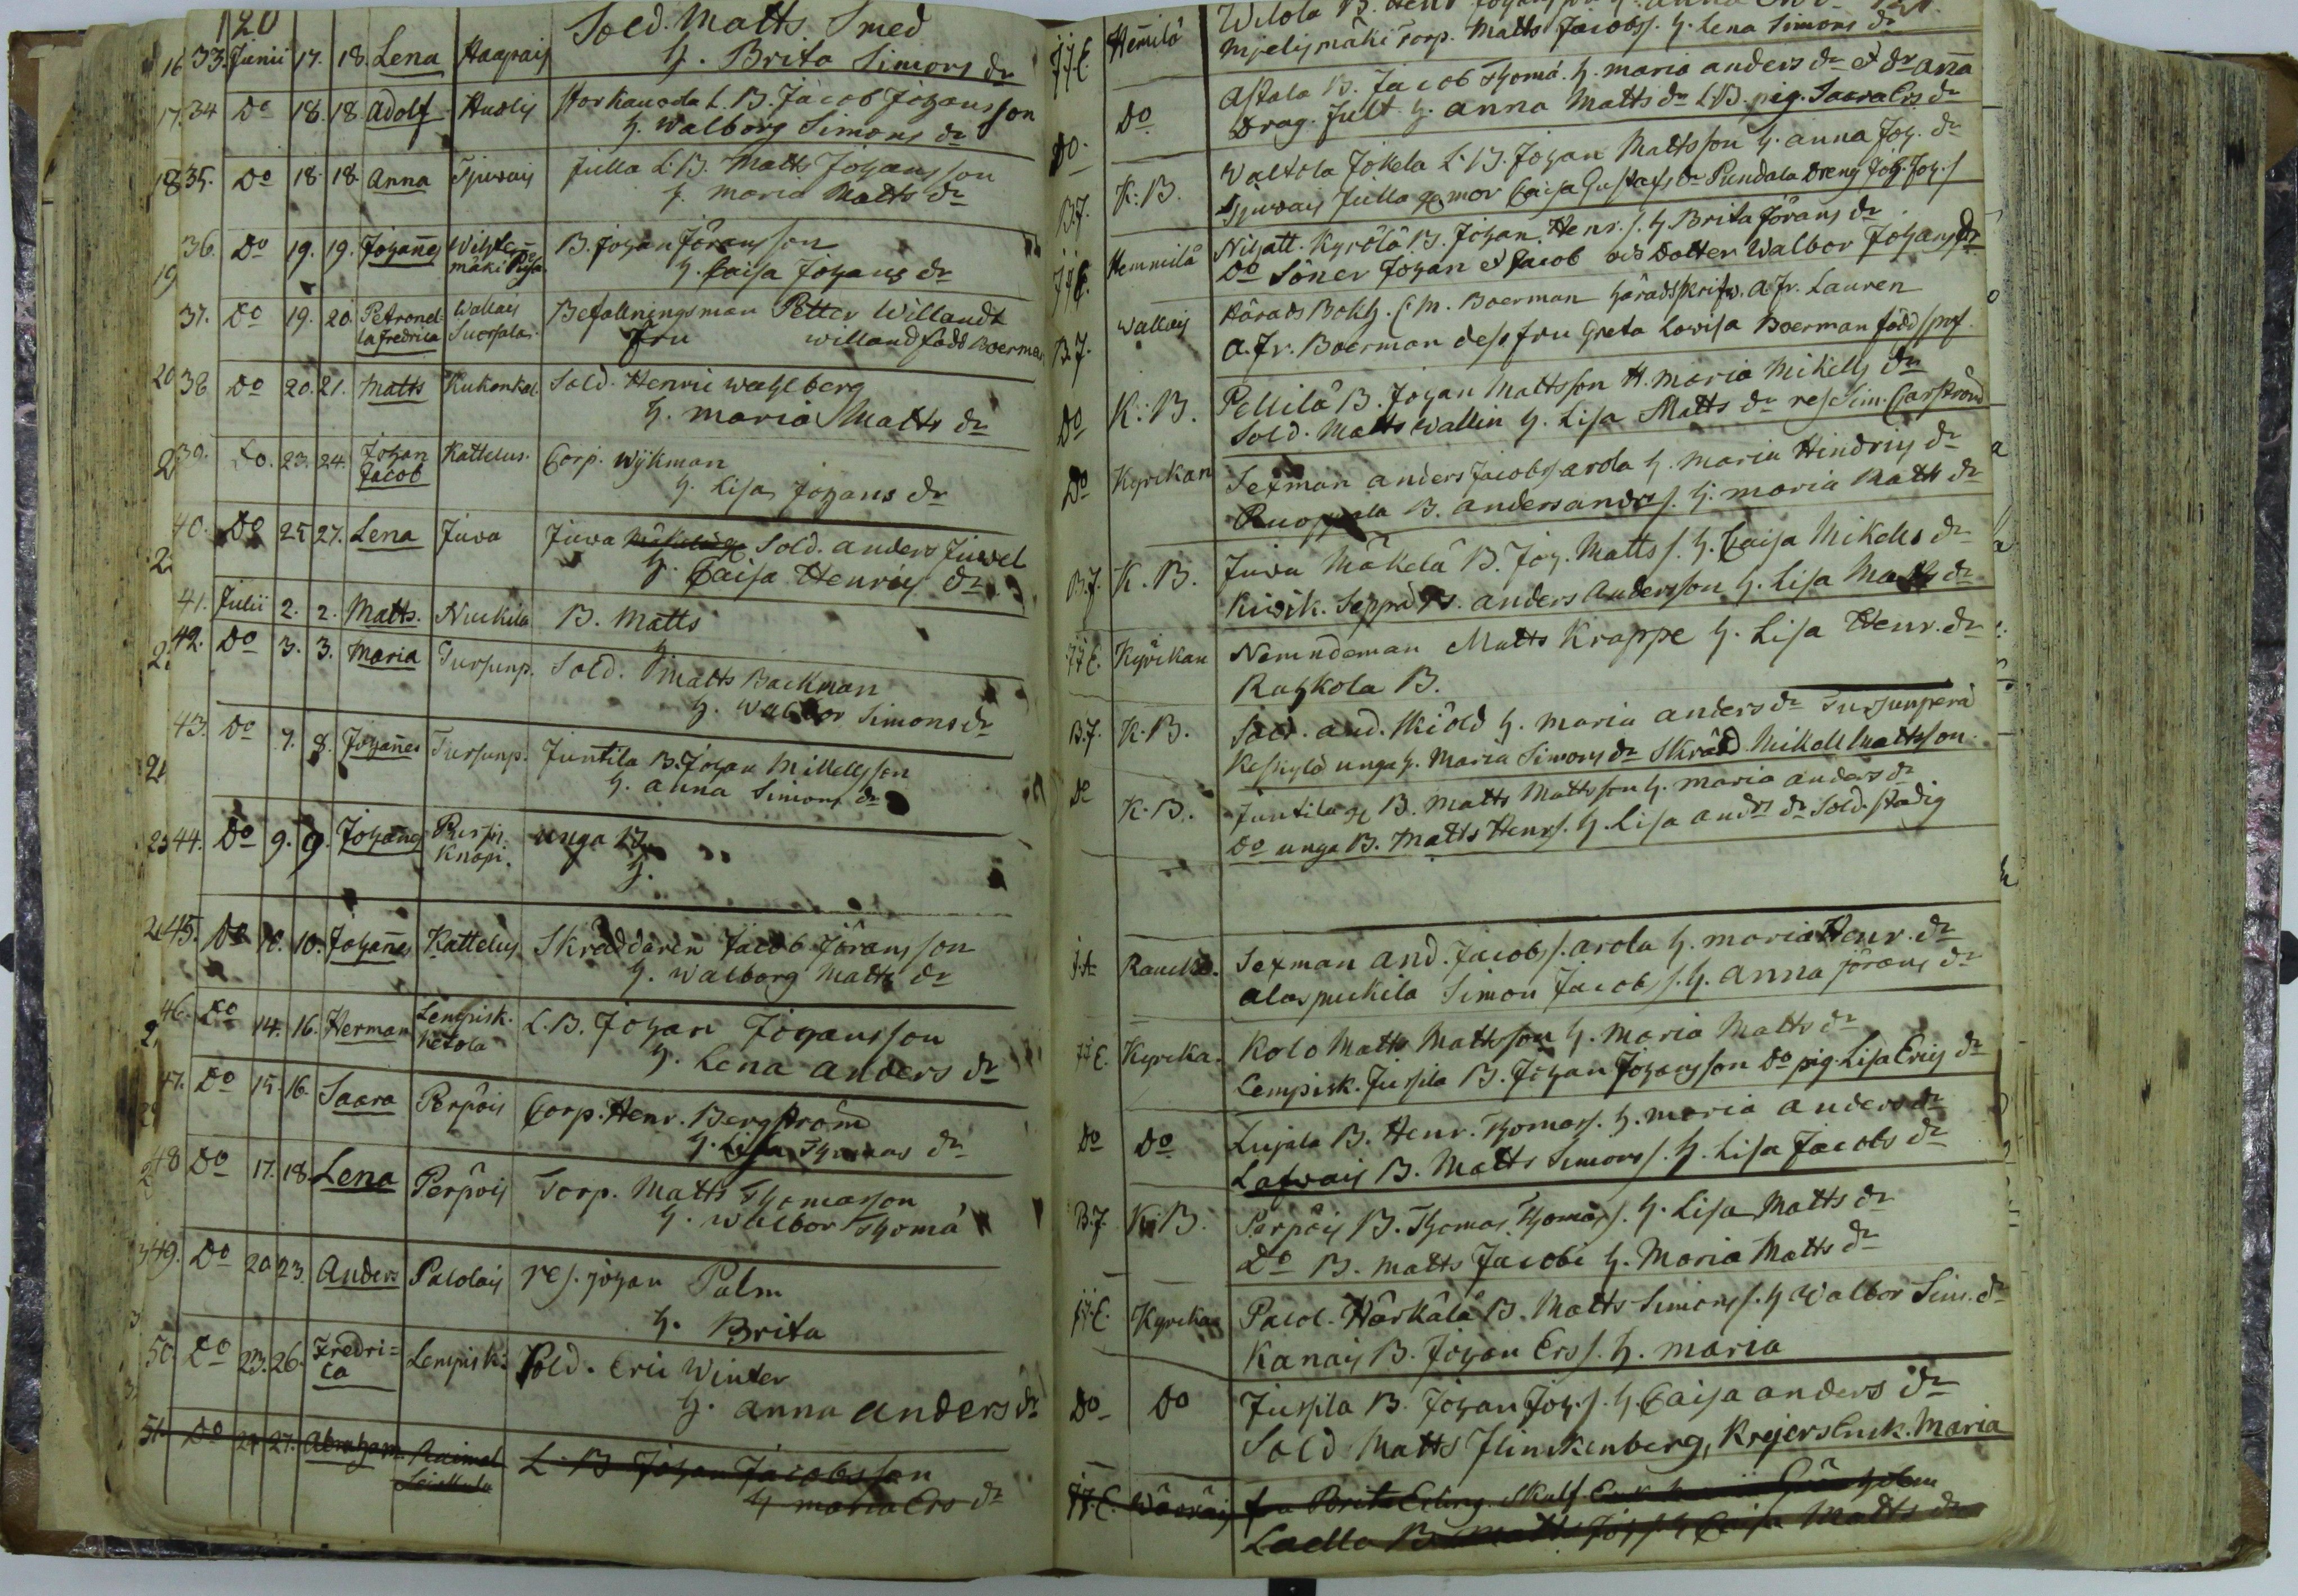 120
16 33. Junii 17. 18. Lena Haapais Sold. Matts Smed
H. Brita Simons dr
17. 34 Do 18. 18. Adolf Huolis Storkausda L. B. Jacob Johansson
H. Walborg Simons dr
18 35. Do 18. 18. Anna Tjurvais Julla L. B. Matts Johansson
H. Maria Matts dr
19 36. Do 19. 19. Johanes B. Johan Jöransson
mäki H. Caisa Johans dr
37. Do 19. 20. Petronel- Wallais Befallningsman Petter Willandt
la Fredrica Suorsala Fru Willand född Boerman
20 38 Do 20. 21. Matts Kukonkal. Sold. Henric Wahlberg
H. Maria Matts dr
39. Do. 23. 24. Johan Kattelus. Corp. Wykman
Jacob H. Lisa Johans dr
40. Do 25 27. Lena Juva Juva Sold. Anders Juvel
H. Caisa Henrics dr
41. Julii 2. 2. Matts. Nuckila B. Matts
H.
42. Do 3. 3. Maria Tursunp. Sold. Matts Backman
H. Walbor Simons dr
43. Do 7. 8. Johanes Tursunp. Juntila B. Johan Mikellsson
H. Anna Simons dr
44. Do 9. 9. Johanes unga B.
Knapi. H.
45. Do 10. 10. Johanes Kattelus Skräddaren Jacob Jöransson
H. Walborg Matts dr
46. Do 14. 16. Herman Lempisk. L. B. Johan Johansson
Ketola H. Lena Anders dr
47. Do 15. 16. Saara Perpöis Corp. Henr. Bergström
H. Lisa Thomas dr
48 Do 17. 18. Lena Perpöis Torp. Matts Thomasson
H. Walbor Thomä
49. Do 20 23. Anders Palolais res. Johan Palm
H. Brita
50. Do 23. 26. Fredri= Lempisk: Sold. Eric Winter
ca H. Anna Anders dr
51. Do 24 27. Abraham L. B. Johan Jacobsson
H Maria Ers dr
JJ. E. Hemilä
mäki Torp. Matts Jacobs. H. Lena Simons dr
Do. Do Astala B. Jacob Thomä. H. Maria Anders dr et dr Anna
Drag. Fult H. Anna Matts dr L. B. pig. Saara Ers dr
B. J. K: B. Waltola Jokela L. B. Johan Mattsson H. Anna Joh. dr
Tjurvais Julla mor Caisa Gustafs dr Pundala Dreng Joh. Joh. s
JJ E. Hemmilä Nihatt. Kyrölä B. Johan Henr. s. H Brita Jörans dr
Do Söner Johan et Jacob Dotter Walbor Johans dr
B. J. Wallais Härads Bokh. C M. Boerman Häradskrifw. A. Fr. Lauren
A. Fr. Boerman dess fru Greta Lovisa Boerman född
Do K: B. Pellilä B. Johan Mattsson H. Maria Mikells dr
Sold. Matts Wallin H. Lisa Matts dr res Sim.
Do Kyrckan Sexman Anders Jacobs Arola H. Maria Hindrics dr
Ruoppala B. Anders Anders s. H. Maria Matts dr
B. J. K. B. Juva Mäkelä B. Joh. Matts s. H. Caisa Mikells dr
Kivik. Seppä B. Anders Andersson H. Lisa Matts dr
JJ E. Kyrckan Nemndeman Matts Krappe H. Lisa Henr. dr
Rahkola B.
B. J. K. B. Sold. And. Skiöld H. Maria Anders dr Tursunperä
unga H. Maria Simons dr Skräd. Mikell Mattsson
Do K. B. Juntila B. Matts Mattsson H. Maria Anders dr
Do unga B. Matts Henrs. H. Lisa Anders dr Sold. Stadig
J. A. Sexman And. Jacobs s. Arola H. Maria Henr. dr
Alas Simon Jacob s. H. Anna Jörans dr
JJ E. Kyrcka. Kolo Matts Mattsson H. Maria Matts dr
Lempisk. Jussila B. Johan Johansson Do pig. Lisa Erics dr
Do Do Lujala B. Henr. Thomas s. H. Maria Anders dr
B. Matts Simons s. H. Lisa Jacobs dr
B. J. K: B. Perpöis B. Thomas Thomas s. H. Lisa Matts dr
Do B. Matts Jacobi H. Maria Matts dr
JJ. E. Kyrckan Palol. Härkälä B. Matts Simons s. H Walbor Sim. dr
Kanais B. Johan Ers s. H. Maria
Do Do Jussila B. Johan Joh. s. H. Caisa Anders dr
Sold Matts Flinckenberg, Krejers Enk. Maria
JJ. E.
B. Matts Matts dr